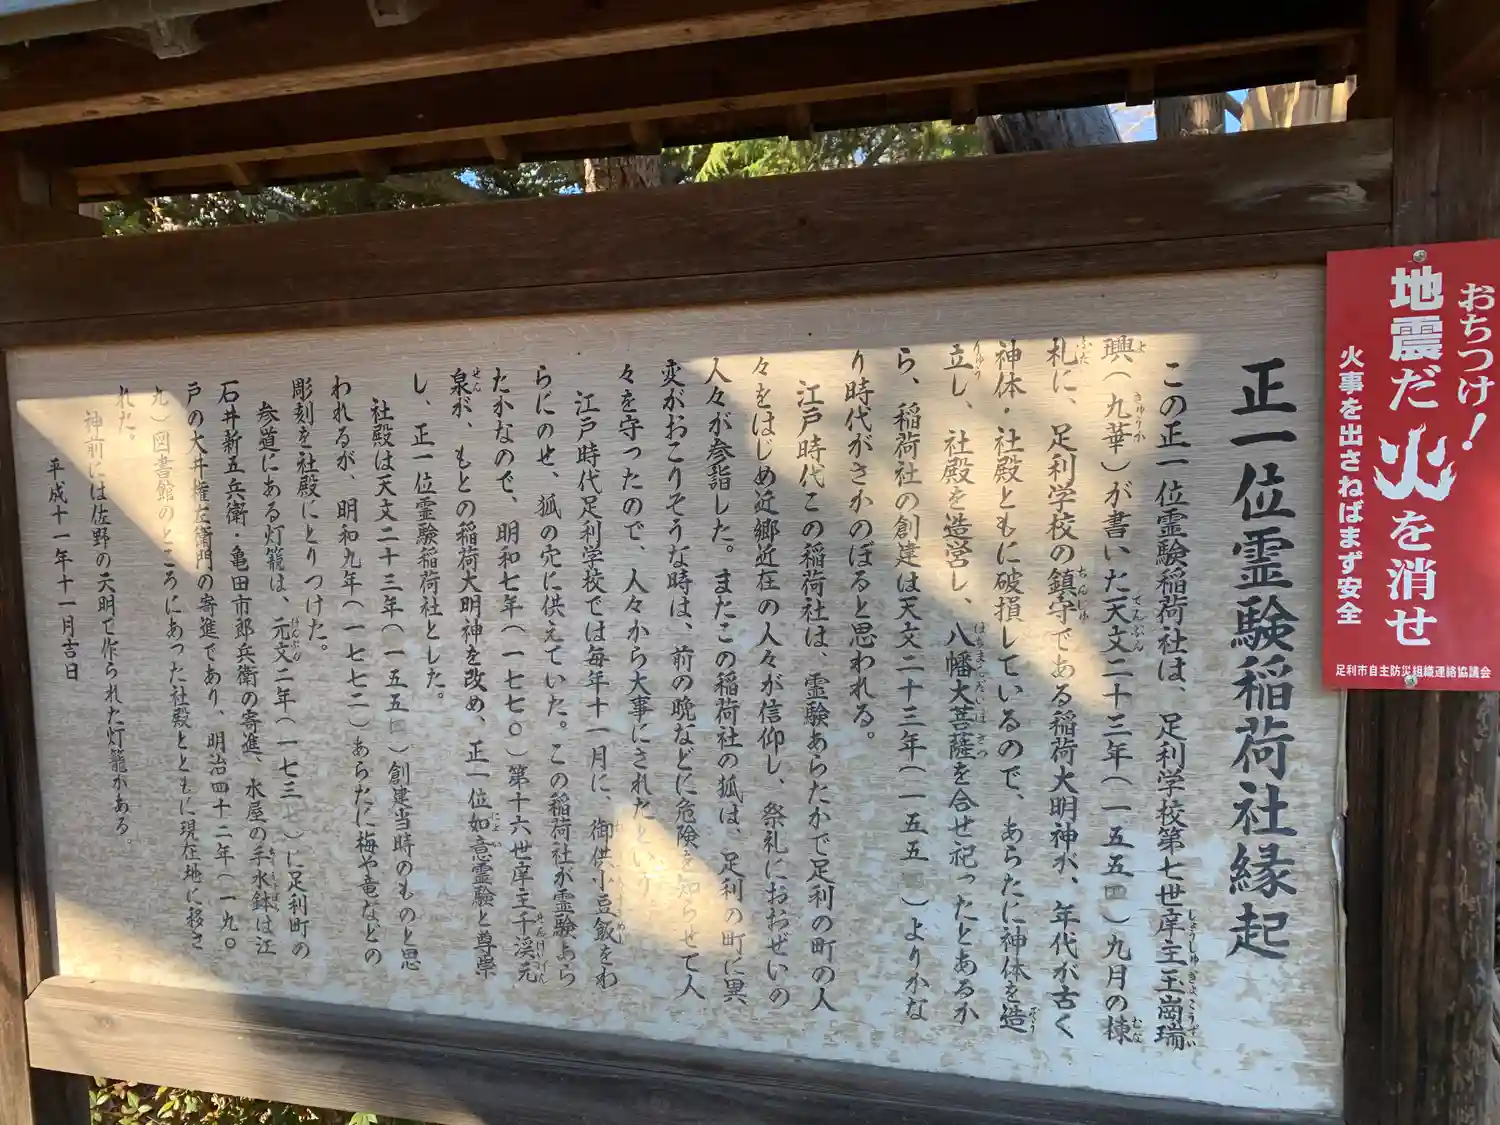 正一位霊験稲荷社縁起
この正一位霊験稲荷社は、足利学校第七世庠主玉崗瑞
璵(九華)が書いた天文二十三年(一五五四)九月の棟
札に、足利学校の鎮守である稲荷大明神が、年代が古く
神体・社殿ともに破損しているので、あらたに神体を造
立し、社殿を造営し、八幡大菩薩を合せ祀ったとあるか
ら、稲荷社の創建は天文二十三年(一五五 )よりかな
り時代がさかのぼると思われる。
江戸時代この稲荷社は、霊験あらたかで足利の町の人
々をはじめ近郷近在の人々が信仰し、祭礼におおぜいの
人々が参詣した。またこの稲荷社の狐は、足利の町に異
変がおこりそうな時は、前の晩などに危険を知らせて人
々を守ったので、人々から大事にされたという。
江戸時代足利学校では毎年十一月に、御供小豆飯をわ
らにのせ、狐の穴に供えていた。この稲荷社が霊験あら
たかなので、明和七年(一七七〇)第十六世庠主千渓元
泉が、もとの稲荷大明神を改め、正一位如意霊験と尊崇
し、正一位霊験稲荷社とした。
社殿は天文二十三年(一五五四)創建当時のものと思
われるが、明和九年(一七七二)あらたに梅や竜などの
彫刻を社殿にとりつけた。
参道にある灯籠は、元文二年(一七三七)に足利町の
石井新五兵衛・亀田市郎兵衛の寄進、水屋の手水鉢は江
戸の大井権左衛門の寄進であり、明治四十二年(一九〇
九)図書館のところにあった社殿とともに現在地に移さ
れた。
神前には佐野の天明で作られた灯籠がある。
平成十一年十一月吉日
おちつけ!
地震だ火を消せ
火事を出さねばまず安全
足利市自主防災組織連絡協議会